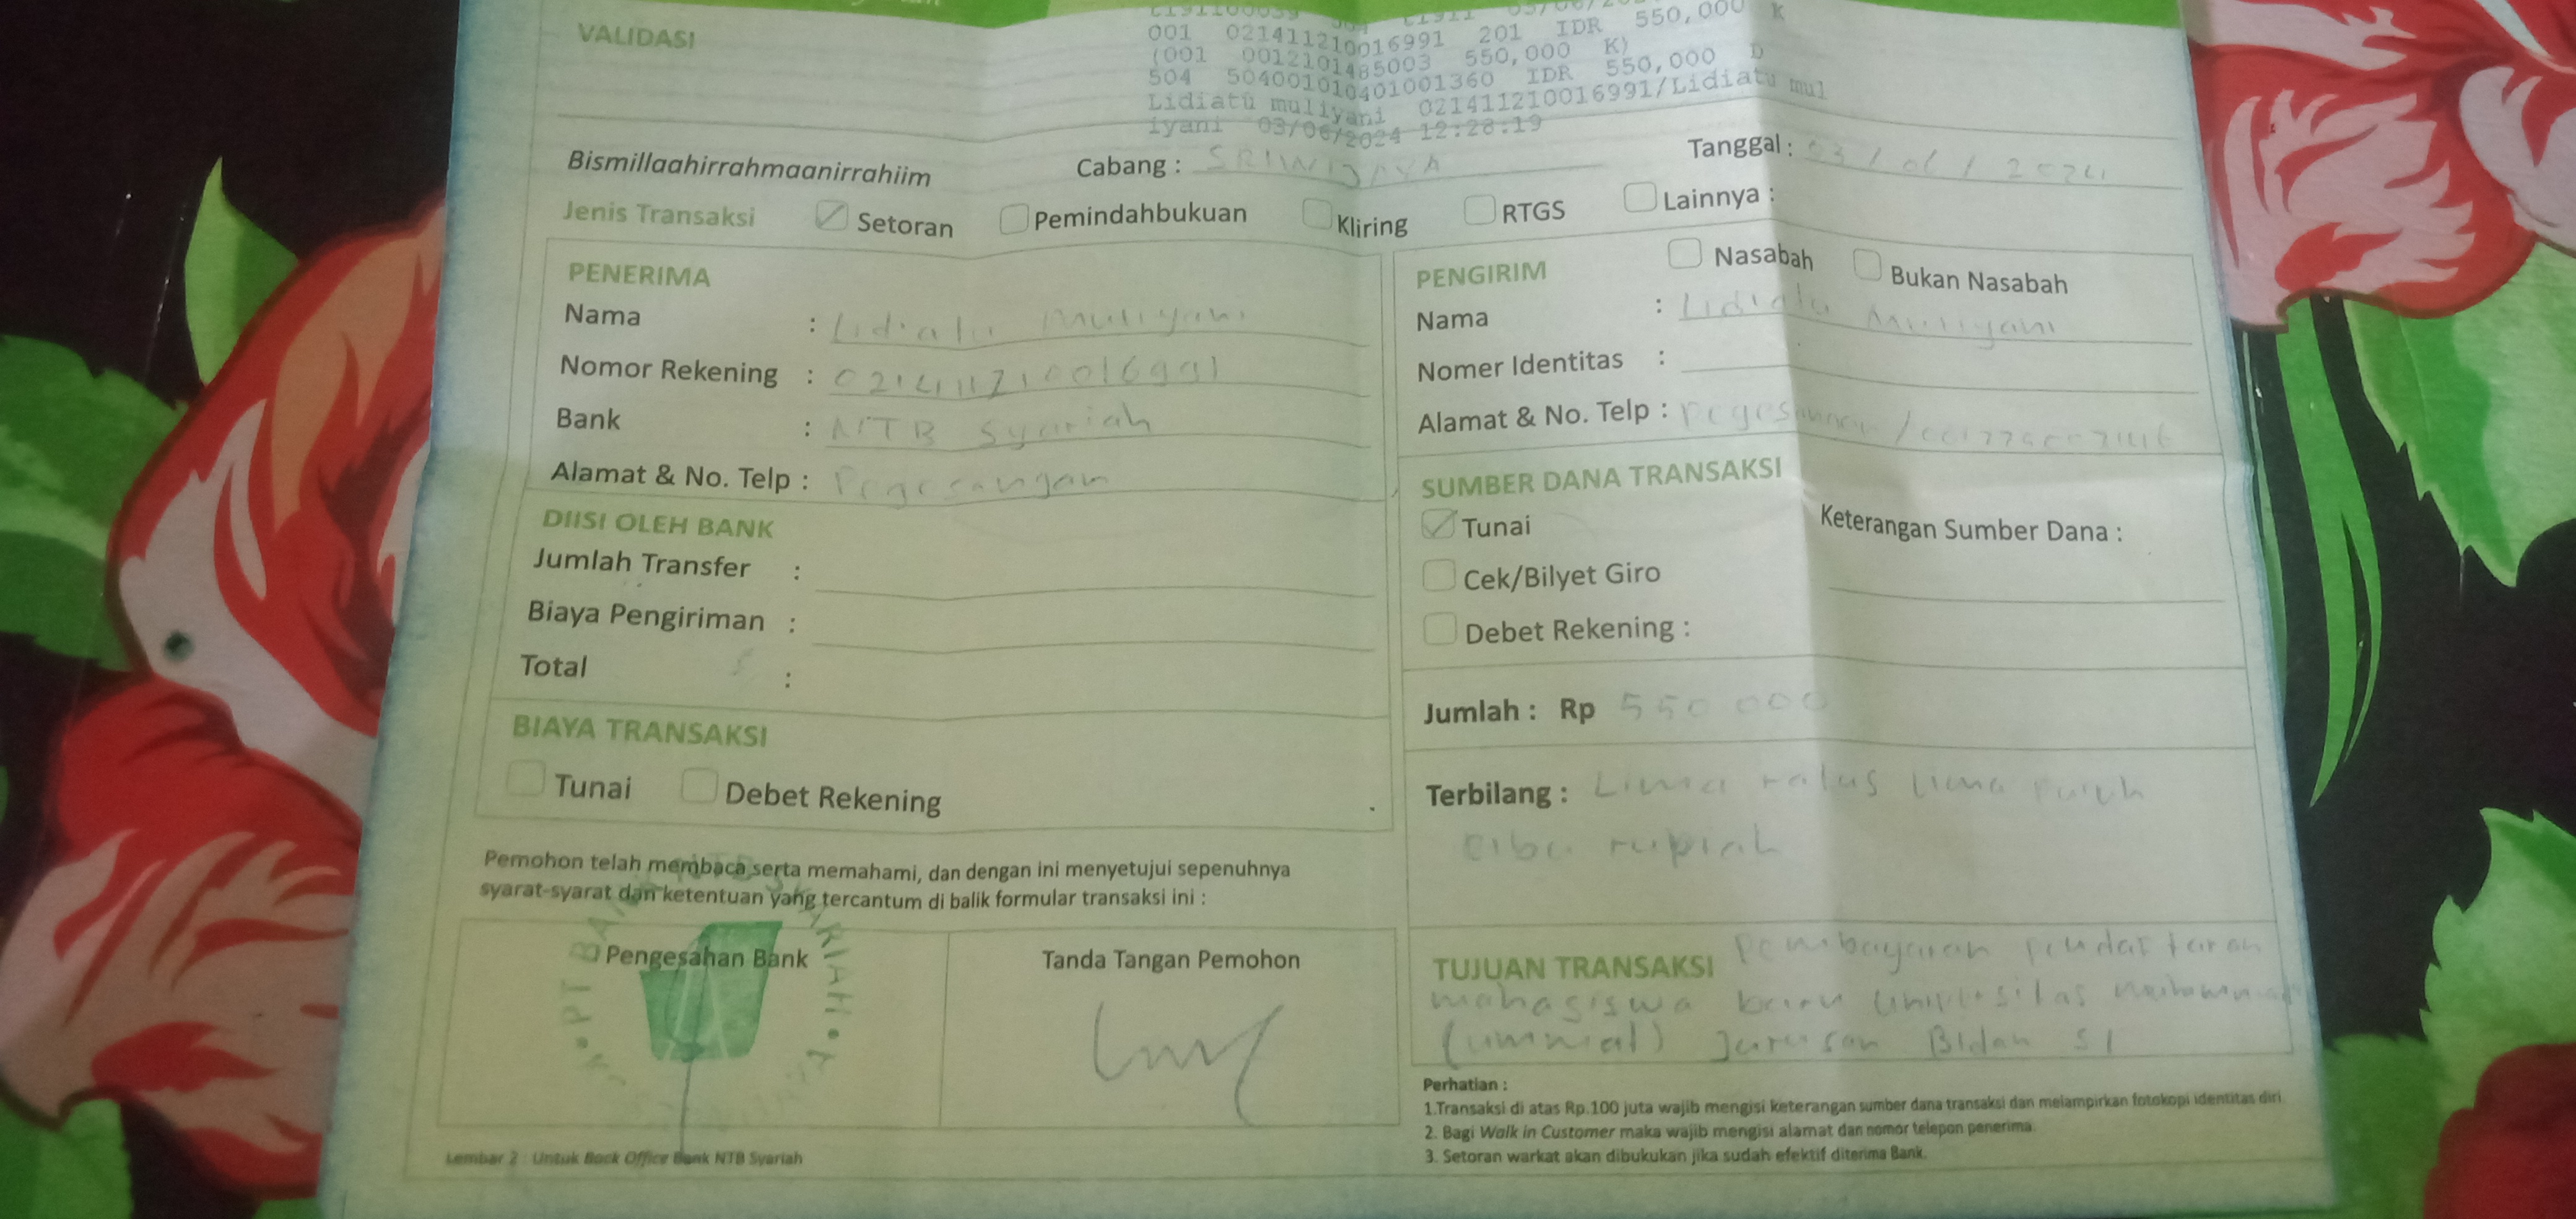 VALIDASI
001 021411210016991 201 IDR 550,000 K
(001 0012101485003 550,000 K)
504 504001010401001360 IDR 550,000 D
Lidiatu muliyani 021411210016991/Lidiatu mul
iyani 03/06/2024 12:28:19
Bismillaahirrahmaanirrahiim Cabang : SRIWIJAYA Tanggal : 03 / 06 / 2024
Jenis Transaksi Setoran Pemindahbukuan Kliring RTGS Lainnya :
PENERIMA
Nama : Lidiatu Muliyani
Nomor Rekening : 021411210016991
Bank : NTB Syariah
Alamat & No. Telp : Pegesangan
DIISI OLEH BANK
Jumlah Transfer :
Biaya Pengiriman :
Total :
BIAYA TRANSAKSI
Tunai Debet Rekening
PENGIRIM Nasabah Bukan Nasabah
Nama : Lidiatu Muliyani
Nomer Identitas :
Alamat & No. Telp : Pegesangan /
SUMBER DANA TRANSAKSI
Tunai Keterangan Sumber Dana :
Cek/Bilyet Giro
Debet Rekening :
Jumlah : Rp 550 000
Terbilang : Lima ratus lima puluh
ribu rupiah
Pemohon telah membaca serta memahami, dan dengan ini menyetujui sepenuhnya
syarat-syarat dan ketentuan yang tercantum di balik formular transaksi ini :
Pengesahan Bank Tanda Tangan Pemohon
TUJUAN TRANSAKSI Pembayaran pendaftaran
mahasiswa baru universitas
(ummat) Jurusan Bidan S1
Perhatian :
1.Transaksi di atas Rp.100 juta wajib mengisi keterangan sumber dana transaksi dan melampirkan fotokopi identitas diri.
2. Bagi Walk in Customer maka wajib mengisi alamat dan nomor telepon penerima.
3. Setoran warkat akan dibukukan jika sudah efektif diterima Bank.
Lembar 2 : Untuk Back Office Bank NTB Syariah